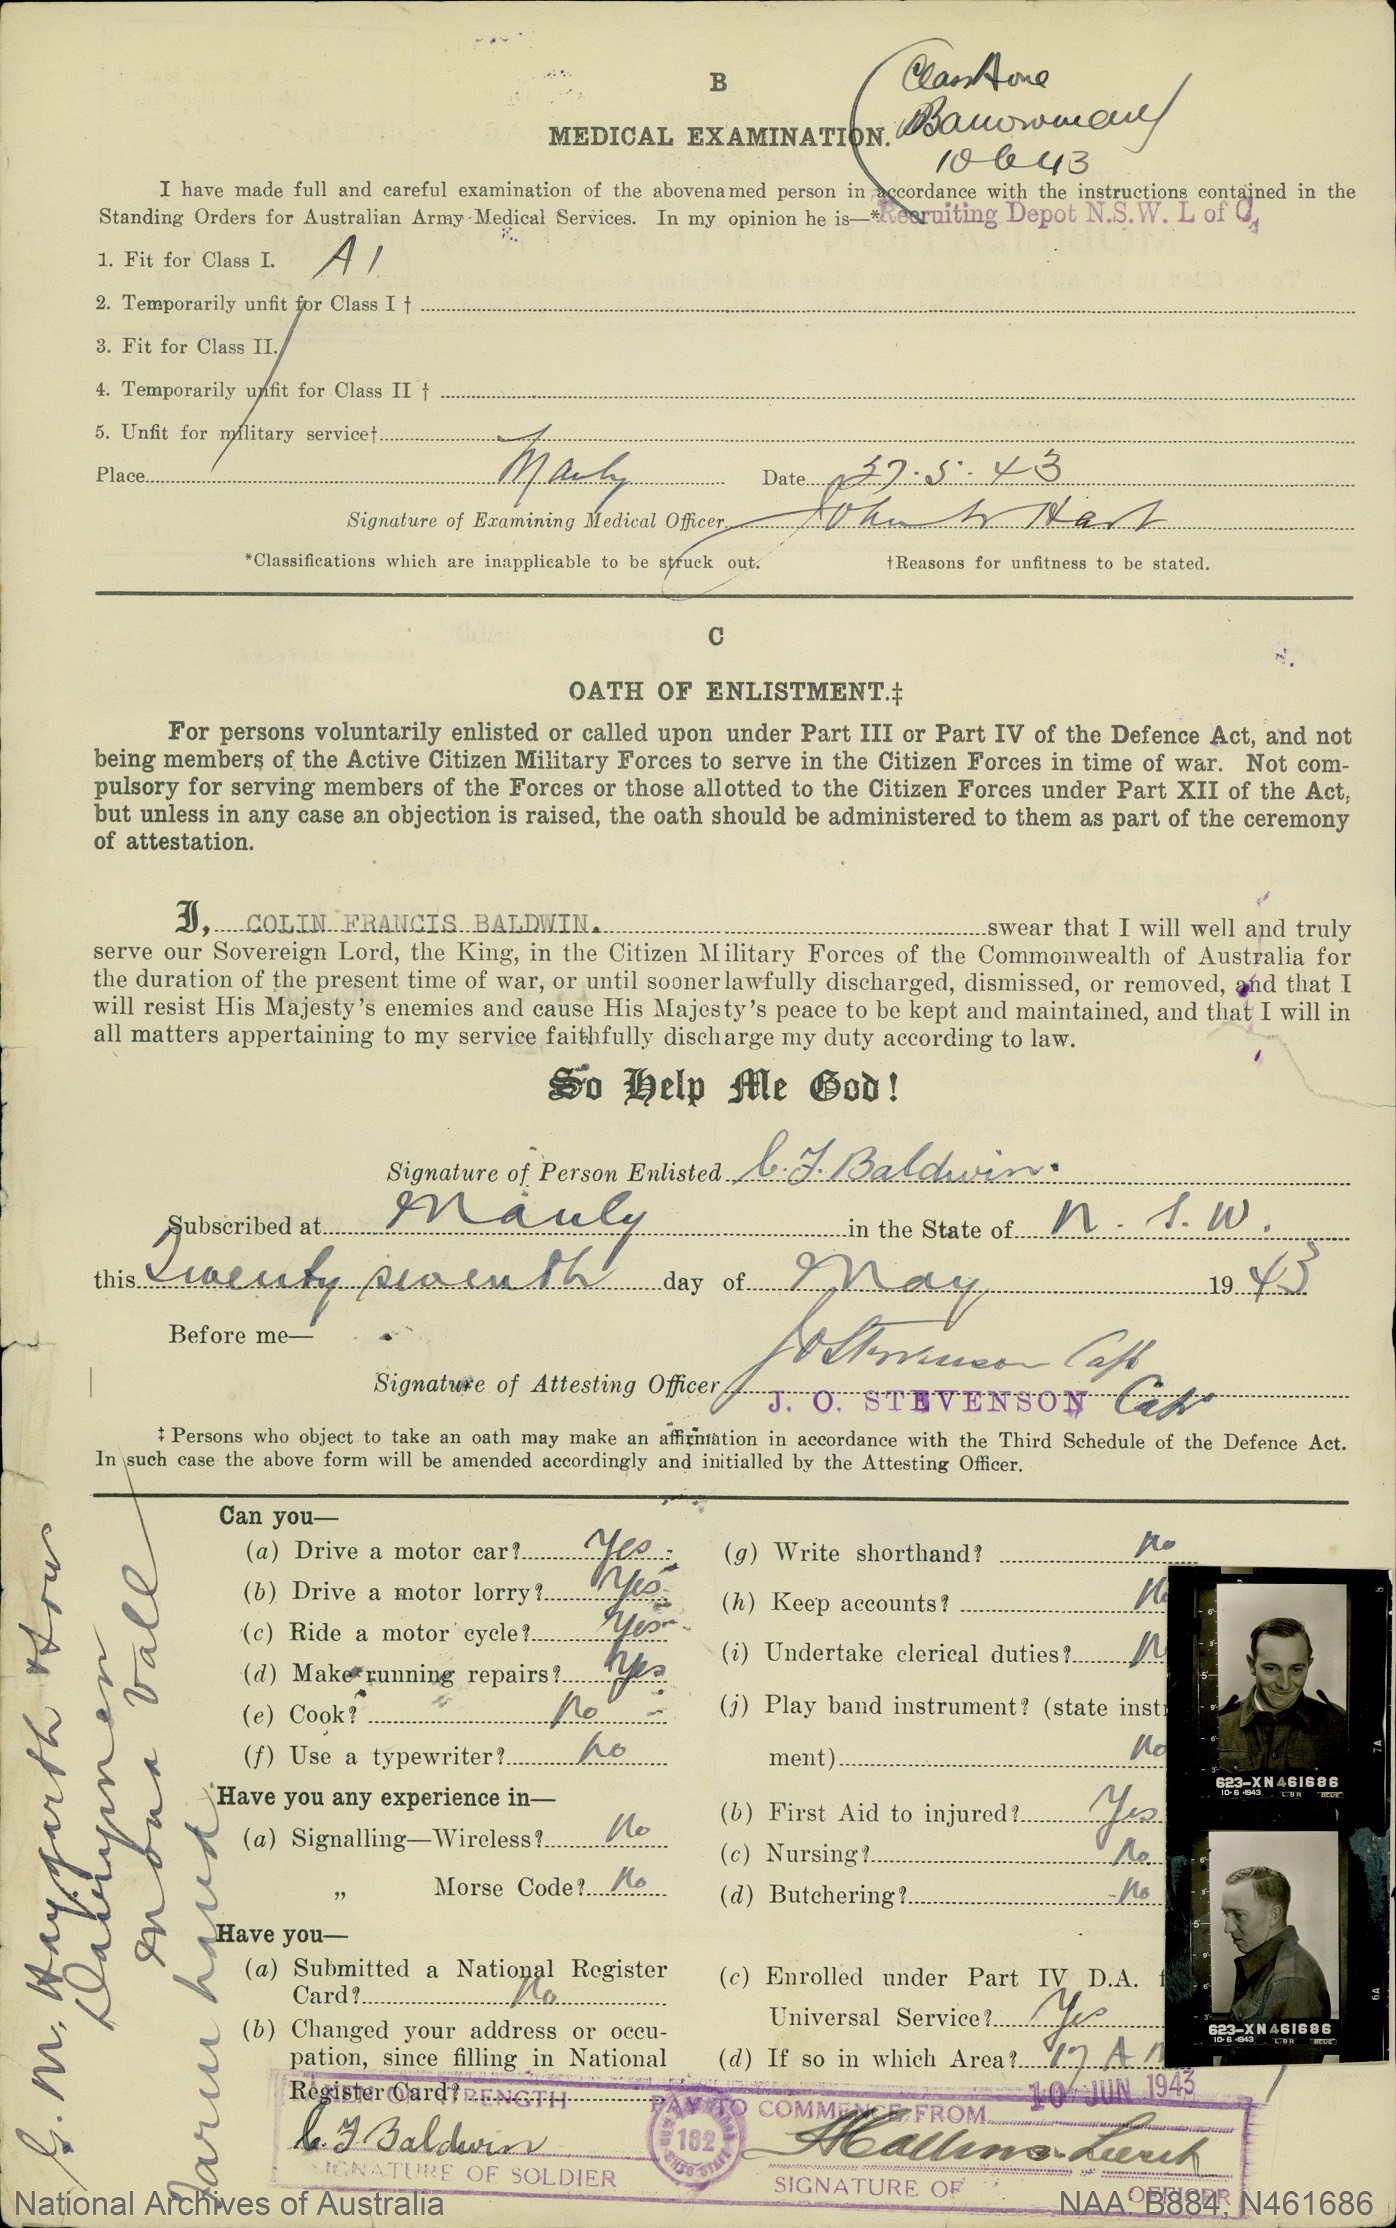 B
Class One
10 6 43
MEDICAL EXAMINATION.
I have made full and careful examination of the abovenamed person in accordance with the instructions contained in the
Standing Orders for Australian Army Medical Services. In my opinion he is—*
Recruiting Depot N.S.W. L of C
1. Fit for Class I. A 1
2. Temporarily unfit for Class I †
3. Fit for Class II.
4. Temporarily unfit for Class II †
5. Unfit for military service†
Place Manly Date 27. 5. 43
Signature of Examining Medical Officer John W Hart
*Classifications which are inapplicable to be struck out. †Reasons for unfitness to be stated.
C
OATH OF ENLISTMENT.‡
For persons voluntarily enlisted or called upon under Part III or Part IV of the Defence Act, and not
being members of the Active Citizen Military Forces to serve in the Citizen Forces in time of war. Not com-
pulsory for serving members of the Forces or those allotted to the Citizen Forces under Part XII of the Act,
but unless in any case an objection is raised, the oath should be administered to them as part of the ceremony
of attestation.
I, COLIN FRANCIS BALDWIN. swear that I will well and truly
serve our Sovereign Lord, the King, in the Citizen Military Forces of the Commonwealth of Australia for
the duration of the present time of war, or until sooner lawfully discharged, dismissed, or removed, and that I
will resist His Majesty's enemies and cause His Majesty's peace to be kept and maintained, and that I will in
all matters appertaining to my service faithfully discharge my duty according to law.
So Help Me God!
Signature of Person Enlisted C. F. Baldwin.
Subscribed at Manly in the State of N. S. W.
this Twenty seventh day of May 19 43
Before me—
Signature of Attesting Officer J O Stevenson Capt
J. O. STEVENSON Capt
‡ Persons who object to take an oath may make an affirmation in accordance with the Third Schedule of the Defence Act.
In such case the above form will be amended accordingly and initialled by the Attesting Officer.
Can you—
(a) Drive a motor car? Yes
(b) Drive a motor lorry? Yes
(c) Ride a motor cycle? Yes
(d) Make running repairs? Yes
(e) Cook? No
(f) Use a typewriter? No
Have you any experience in—
(a) Signalling—Wireless? No
„ Morse Code? No
Have you—
(a) Submitted a National Register
Card? No
(b) Changed your address or occu-
pation, since filling in National
Register Card?
(g) Write shorthand? No
(h) Keep accounts? No
(i) Undertake clerical duties? N
(j) Play band instrument? (state inst
ment) No
(b) First Aid to injured? Yes
(c) Nursing? No
(d) Butchering? No
(c) Enrolled under Part IV D.A. f
Universal Service? Yes
(d) If so in which Area? 17 A
623-XN461686
10·6·1943 L.B R BEUE
7A
623-XN461686
10·6·1943 L.B R BEUE
6A
G. M. Haygarth & Sons
Dairymen
Mona Vale
Farm hand
STRENGTH
PAY TO COMMENCE FROM 10 JUN 1943
182
C. F. Baldwin
SIGNATURE OF SOLDIER
SIGNATURE OF OFFICER
National Archives of Australia
NAA: B884, N461686